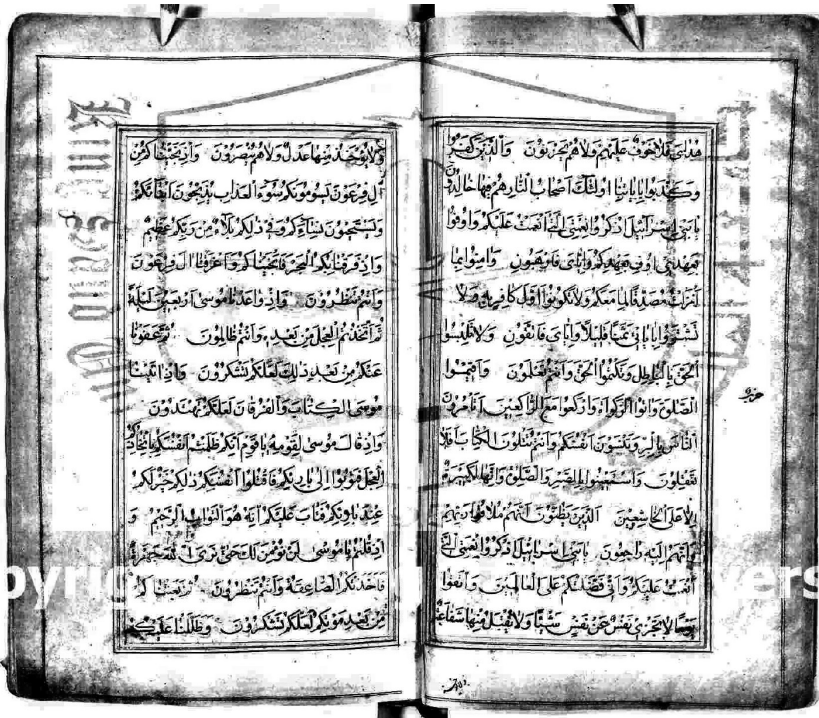 هداي فلا خوف عليهم ولا هم يحزنون والذين كفروا
وكذبوا باياتنا اولئك اصحاب النار هم فيها خالدون
يا بني اسرائيل اذكروا نعمتي التي انعمت عليكم واوفوا
بعهدي اوف بعهدكم واياي فارهبون وامنوا بما
انزلت مصدقا لما معكم ولا تكونوا اول كافر به ولا
تشتروا باياتي ثمنا قليلا واياي فاتقون ولا تلبسوا
الحق بالباطل وتكتموا الحق وانتم تعلمون واقيموا
الصلوة واتوا الزكواة واركعوا مع الراكعين اتامرون
الناس بالبر وتنسون انفسكم وانتم تتلون الكتاب افلا
تعقلون واستعينوا بالصبر والصلوة وانها لكبيرة
الا على الخاشعين الذين يظنون انهم ملاقوا ربهم
وانهم اليه راجعون يا بني اسرائيل اذكروا نعمتي التي
انعمت عليكم واني فضلتكم على العالمين واتقوا
يوما لا تجزي نفس عن نفس شيئا ولا يقبل منها شفاعة
ولا يؤخذ منها عدل ولا هم ينصرون واذ نجيناكم من
ال فرعون يسومونكم سوء العذاب يذبحون ابناءكم
ويستحيون نساءكم وفي ذلكم بلاء من ربكم عظيم
واذ فرقنا بكم البحر فانجيناكم واغرقنا ال فرعون
وانتم تنظرون واذ واعدنا موسى اربعين ليلة
ثم اتخذتم العجل من بعده وانتم ظالمون ثم عفونا
عنكم من بعد ذلك لعلكم تشكرون واذ اتينا
موسى الكتاب والفرقان لعلكم تهتدون
واذ قال موسى لقومه يا قوم انكم ظلمتم انفسكم باتخاذكم
العجل فتوبوا الى بارئكم فاقتلوا انفسكم ذلكم خير لكم
عند بارئكم فتاب عليكم انه هو التواب الرحيم و
اذ قلتم يا موسى لن نؤمن لك حتى نرى الله جهرة
فاخذتكم الصاعقة وانتم تنظرون ثم بعثناكم
من بعد موتكم لعلكم تشكرون وظللنا عليكم